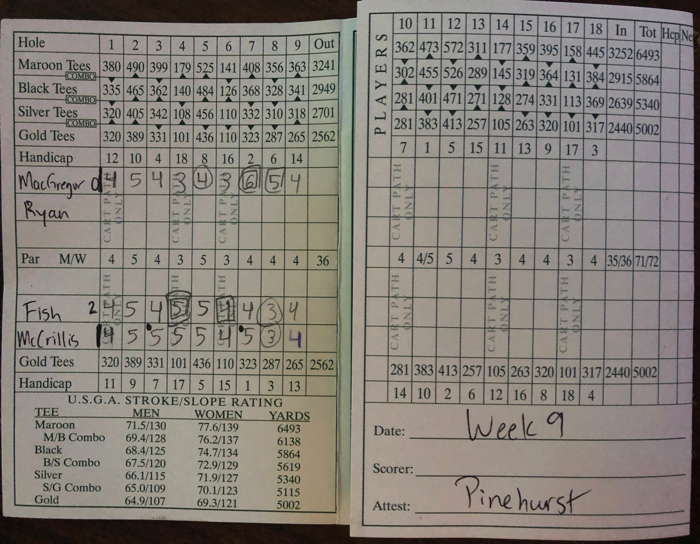 Hole 1 2 3 4 5 6 7 8 9 Out
Maroon Tees 380 490 399 179 525 141 408 356 363 3241
COMBO
Black Tees 335 465 362 140 484 126 368 328 341 2949
COMBO
Silver Tees 320 405 342 108 456 110 332 310 318 2701
COMBO
Gold Tees 320 389 331 101 436 110 323 287 265 2562
Handicap 12 10 4 18 8 16 2 6 14
MacGregor 0 4 5 4 3 4 3 6 5 4
Ryan
CART PATH ONLY CART PATH ONLY CART PATH ONLY
Par M/W 4 5 4 3 5 3 4 4 4 36
Fish 2 4 5 4 5 5 4 4 3 4
McCrillis 1 4 5 5 5 5 4 5 3 4
Gold Tees 320 389 331 101 436 110 323 287 265 2562
Handicap 11 9 7 17 5 15 1 3 13
U.S.G.A. STROKE/SLOPE RATING
TEE MEN WOMEN YARDS
Maroon 71.5/130 77.6/139 6493
M/B Combo 69.4/128 76.2/137 6138
Black 68.4/125 74.7/134 5864
B/S Combo 67.5/120 72.9/129 5619
Silver 66.1/115 71.9/127 5340
S/G Combo 65.0/109 70.1/123 5115
Gold 64.9/107 69.3/121 5002
PLAYERS
10 11 12 13 14 15 16 17 18 In Tot Hcp Net
362 473 572 311 177 359 395 158 445 3252 6493
302 455 526 289 145 319 364 131 384 2915 5864
281 401 471 271 128 274 331 113 369 2639 5340
281 383 413 257 105 263 320 101 317 2440 5002
7 1 5 15 11 13 9 17 3
CART PATH ONLY CART PATH ONLY CART PATH ONLY
4 4/5 5 4 3 4 4 3 4 35/36 71/72
CART PATH ONLY CART PATH ONLY CART PATH ONLY
281 383 413 257 105 263 320 101 317 2440 5002
14 10 2 6 12 16 8 18 4
Date: Week 9
Scorer:
Attest: Pinehurst